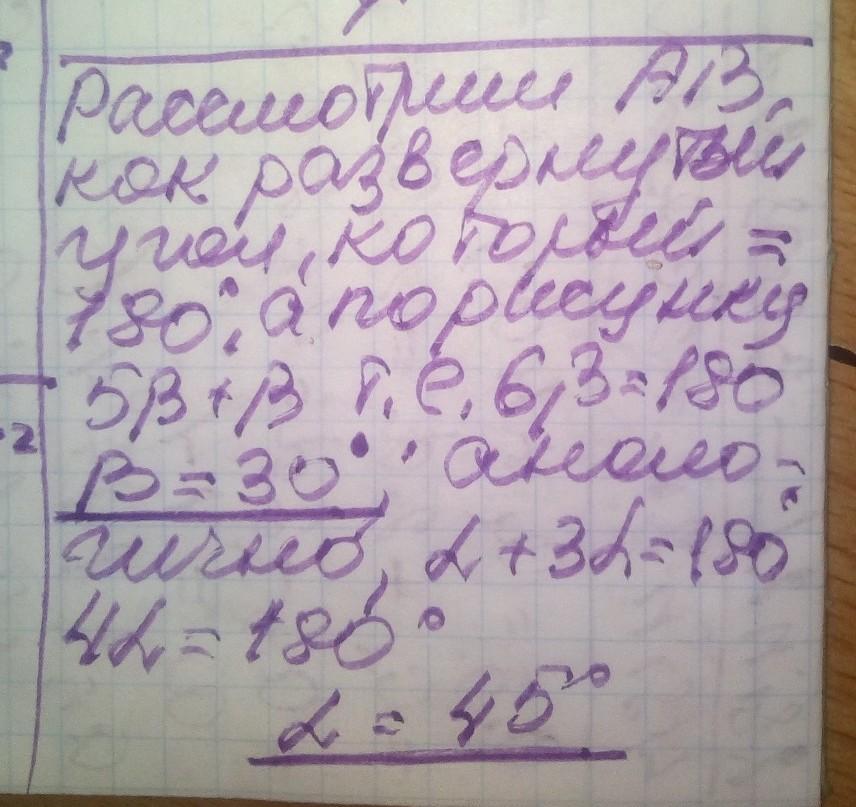 Рассмотрим АВ,
как развернутый
угол, который =
180°, а по рисунку
5β+β т.е. 6β=180
β=30°; анало-
гично, α+3α=180°
4α=180°
α=45°